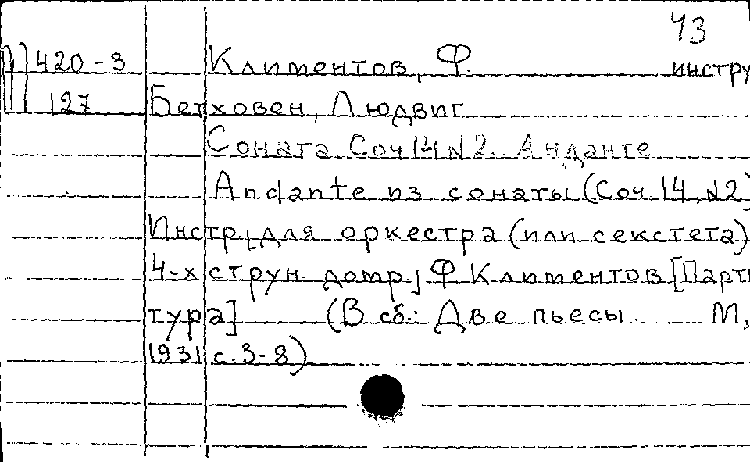 43
420-3 Климентов, Ф. инстру
127 Бетховен, Людвиг
Соната Соч 14 №2. Анданте
Andante из сонаты (Соч. 14, №2)
Инстр. для оркестра (или секстета)
4-х струн. домр, Ф Климентов [Парти
тура] (В сб.: Две пьесы М,
1931 с. 3-8)